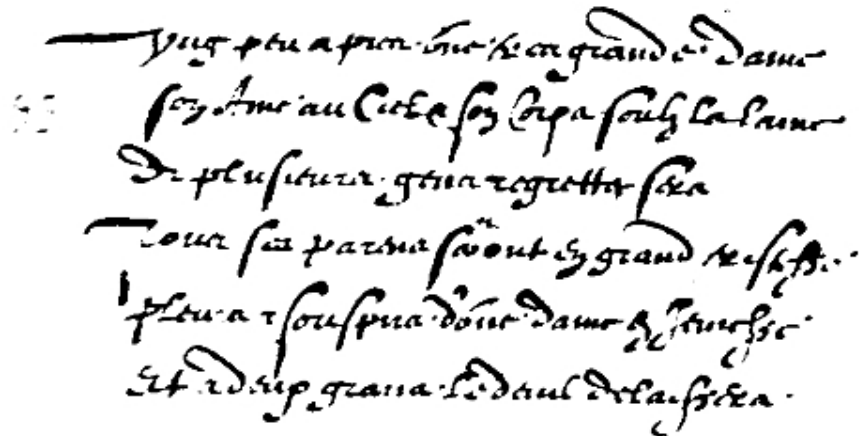 Vng peu apres vne tres grande dame
son Ame au Ciel & son Corps soulz la lame
De plusieurs gens regrettee sera
Tous ses parens seront en grand tristesse
pleurs & souspirs d'vne dame en jeunesse
Et a deux grans le deuil delaissera.